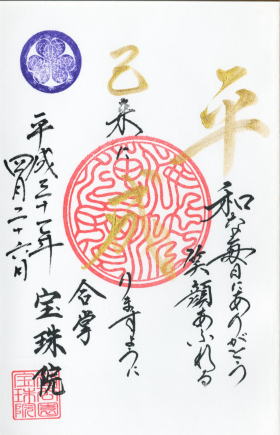 平
和な毎日にありがとう
笑顔あふれる
己
未来に
なりますように
合掌
平成三十一年
四月二十六日
宝珠院